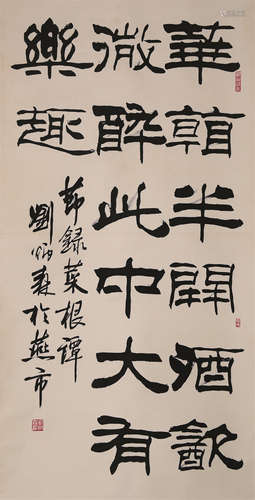 華半開酒㱃
微醉此中大有
樂趣
節錄菜根譚
劉炳森於燕市